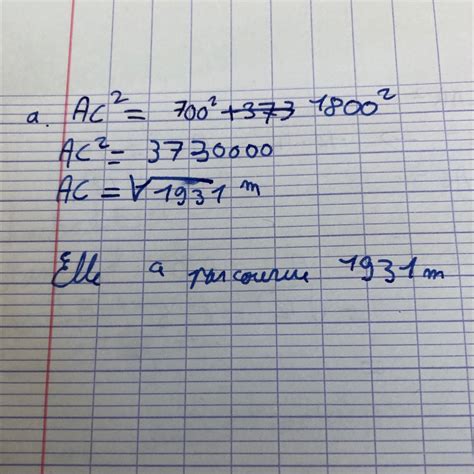 a. AC² = 700² + ~~373~~ 1800²
AC² = 3730000
AC = √1931 m
Elle a parcourue 1931 m